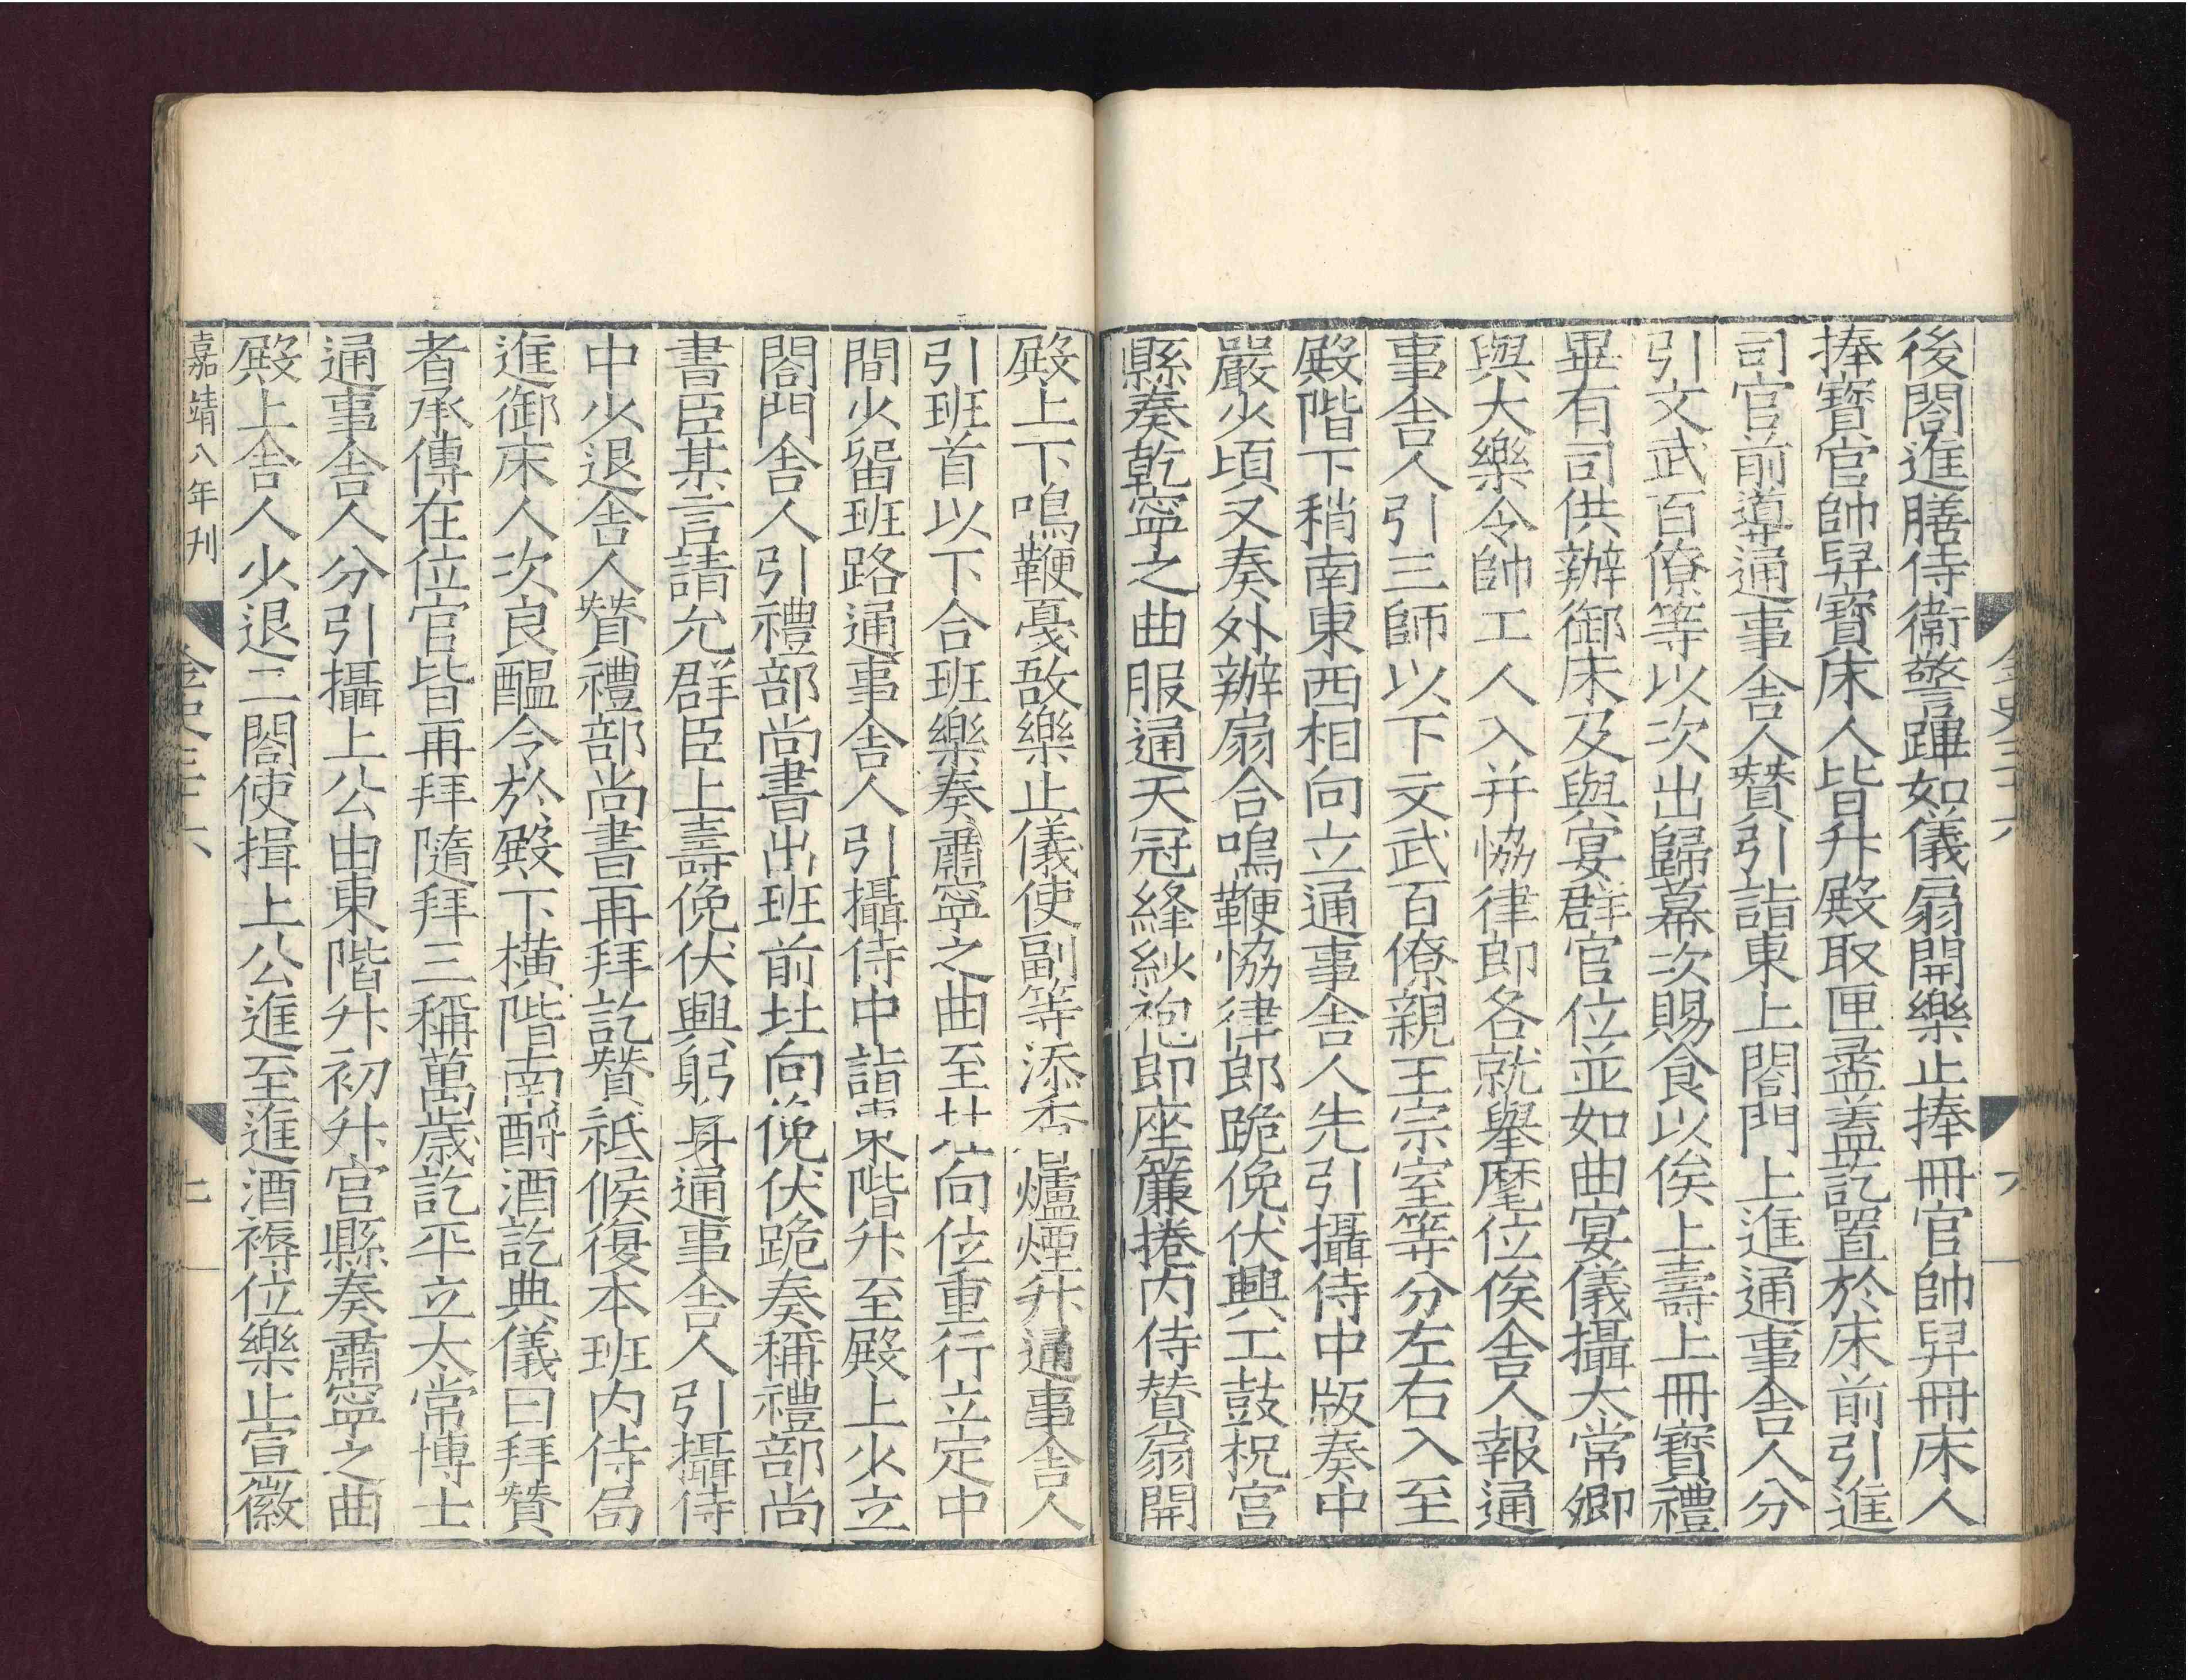 後閤進膳侍衞警蹕如儀扇開樂止捧冊官帥舁冊床人
捧寶官帥舁寶床人皆升殿取匣盝蓋訖置於床前引進
司官前導通事舍人贊引詣東上閤門上進通事舍人分
引文武百僚等以次出歸幕次賜食以俟上壽上冊寶禮
畢有司供辦御床及與宴群官位並如曲宴儀攝太常卿
與大樂令帥工人入并協律郎各就舉麾位俟舍人報通
事舍人引三師以下文武百僚親王宗室等分左右入至
殿階下稍南東西相向立通事舍人先引攝侍中版奏中
嚴少頃又奏外辦扇合鳴鞭協律郎跪俛伏興工鼓柷宮
縣奏乾寧之曲服通天冠絳紗袍即座簾捲内侍賛扇開
殿上下鳴鞭戞敔樂止儀使副等添香爐煙升通事舍人
引班首以下合班樂奏肅寧之曲至北向位重行立定中
間少留班路通事舍人引攝侍中詣東階升至殿上少立
閤門舍人引禮部尚書出班前北向俛伏跪奏稱禮部尚
書臣某言請允群臣上壽俛伏興躬身通事舍人引攝侍
中少退舍人贊禮部尚書再拜訖贊祗候復本班内侍局
進御床入次良醖令於殿下橫階南酹酒訖典儀曰拜贊
者承傳在位官皆再拜隨拜三稱萬歳訖平立太常博士
通事舍人分引攝上公由東階升初升宮縣奏肅寧之曲
殿上舍人少退二閤使揖上公進至進酒褥位樂止宣徽
嘉靖八年刊
金史三十六
七